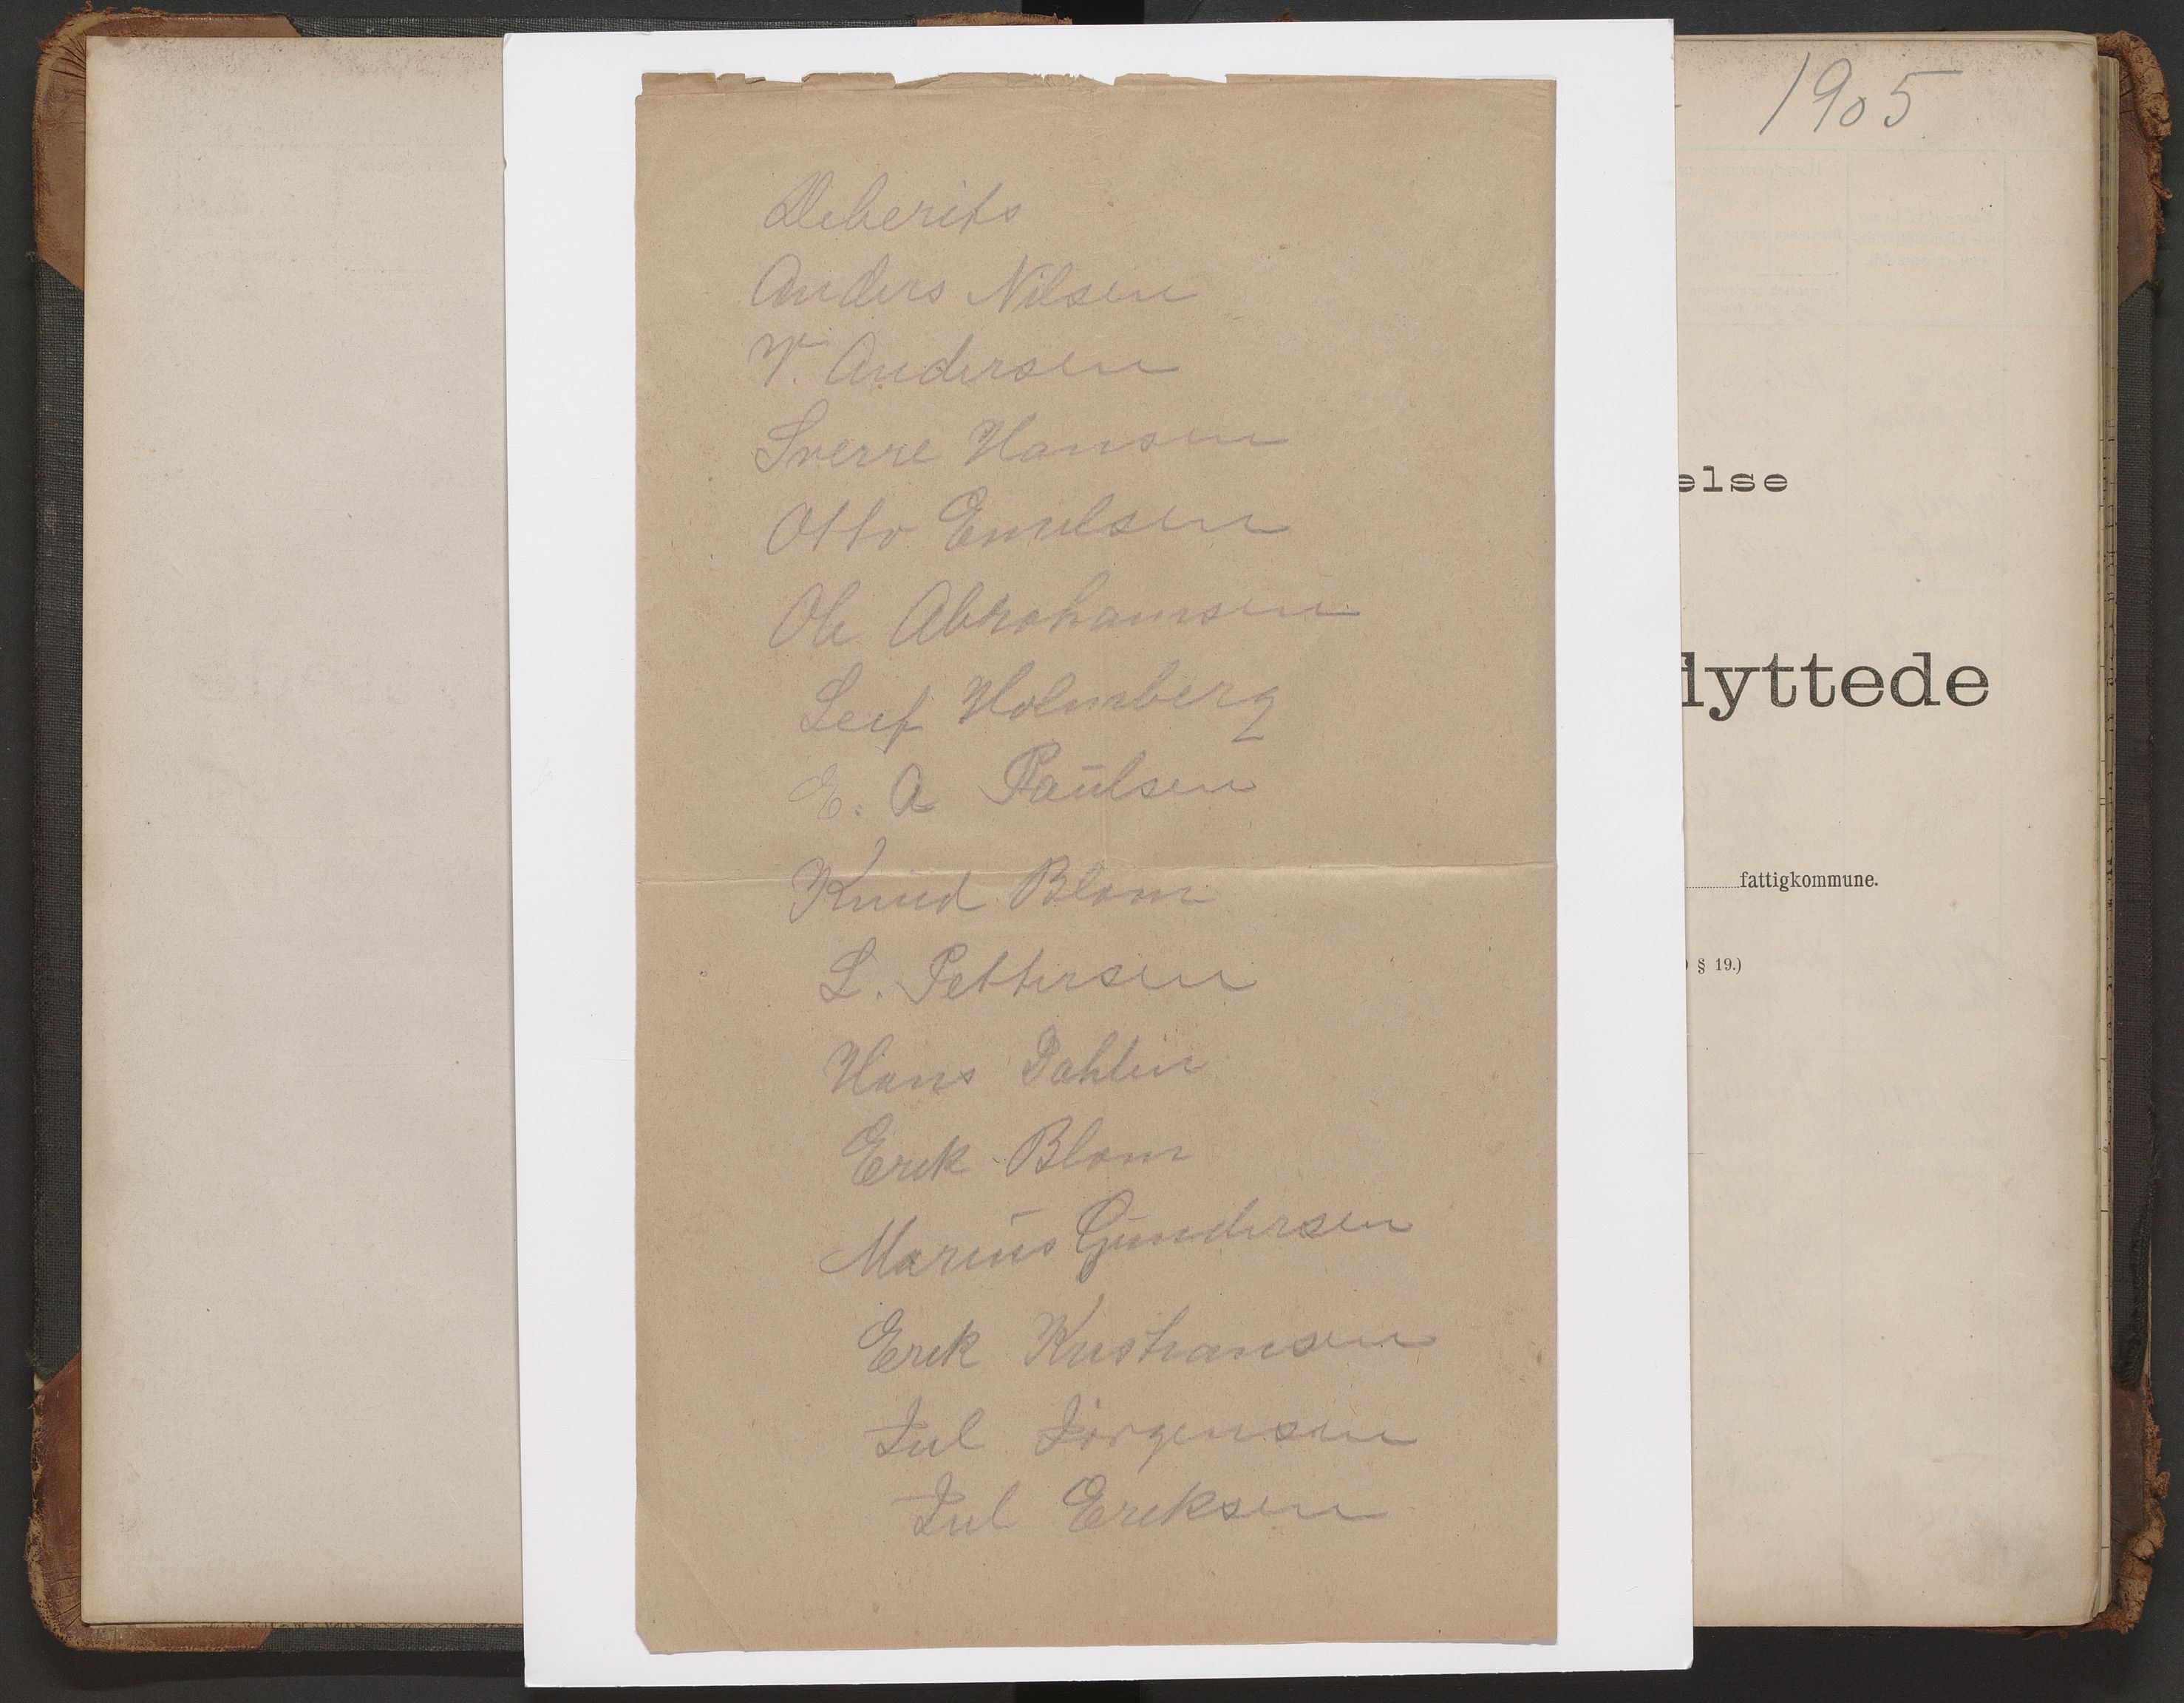 Deberits
Anders Nilsen
W. Andersen
Sverre Hansen
Otto Emilsen
Ole Abrahamsen
Leif Holmberg
E. A Paulsen
Knud Blom
L. Pettersen
Hans Dahlin
Erik Blom
Marius Gundersen
Erik Kristiansen
Jul Jörgensen
Jul Eriksen
1905
else
lyttede
fattigkommune.
§ 19.)